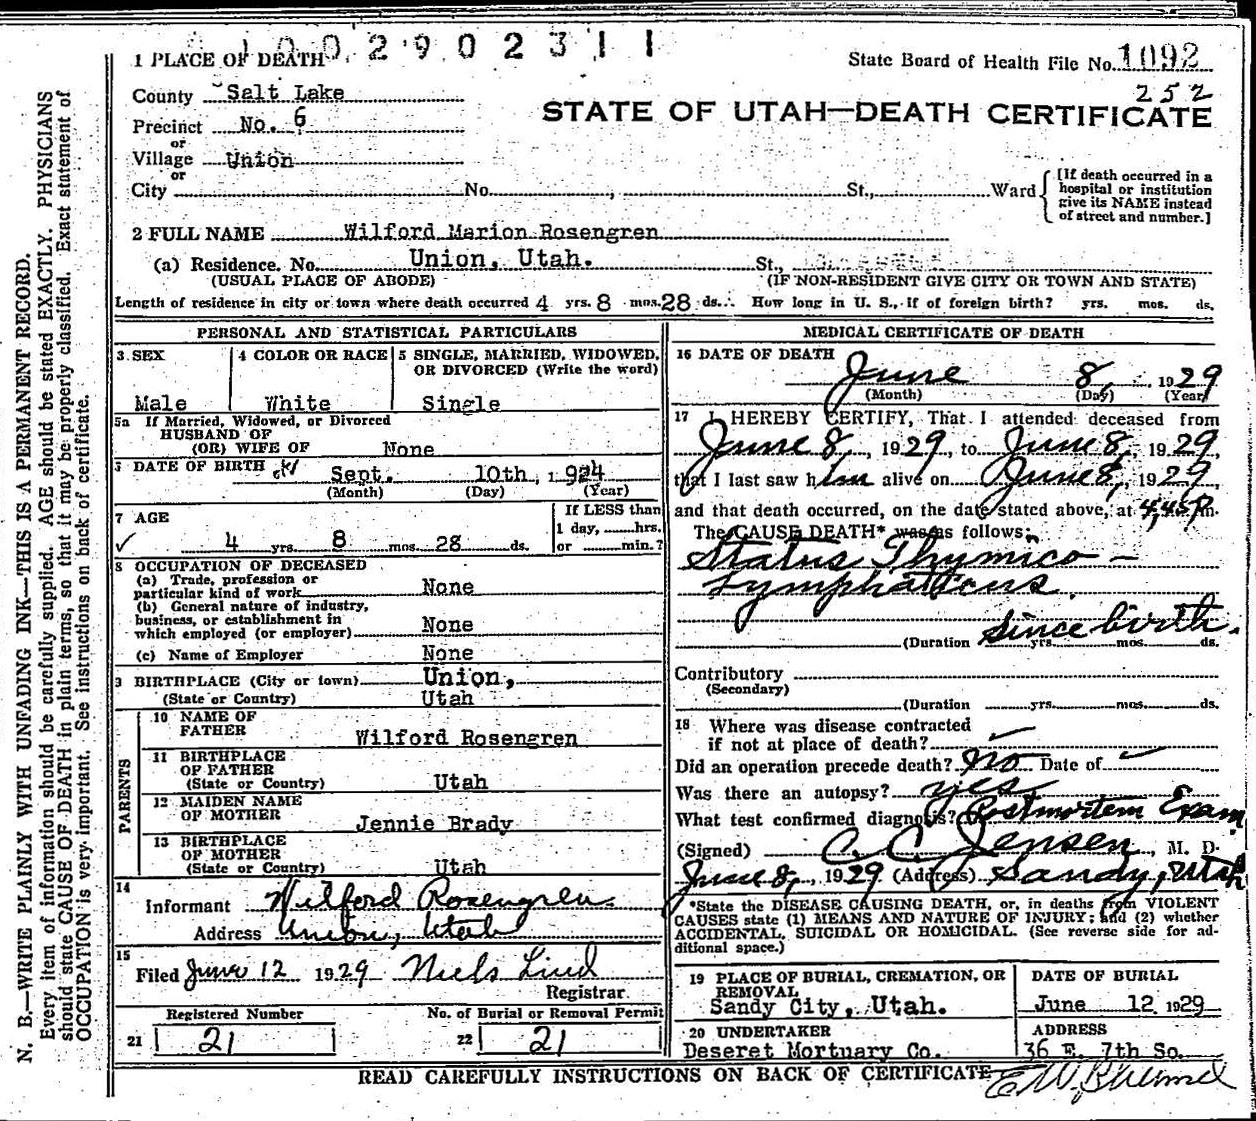 1002902311
1 PLACE OF DEATH
State Board of Health File No. 1092
252
County Salt Lake
STATE OF UTAH—DEATH CERTIFICATE
Precinct No. 6
or
Village Union
or
City No. , St., Ward
[If death occurred in a hospital or institution give its NAME instead of street and number.]
2 FULL NAME Wilford Marion Rosengren
(a) Residence. No. Union, Utah. St.,
(USUAL PLACE OF ABODE) (IF NON-RESIDENT GIVE CITY OR TOWN AND STATE)
Length of residence in city or town where death occurred 4 yrs. 8 mos. 28 ds. How long in U. S., if of foreign birth? yrs. mos. ds.
PERSONAL AND STATISTICAL PARTICULARS
3 SEX
Male
4 COLOR OR RACE
White
5 SINGLE, MARRIED, WIDOWED, OR DIVORCED (Write the word)
Single
5a If Married, Widowed, or Divorced
HUSBAND OF
(OR) WIFE OF None
DATE OF BIRTH Sept. 10th, 1924
(Month) (Day) (Year)
7 AGE
4 yrs. 8 mos. 28 ds.
If LESS than
1 day, hrs.
or min.?
8 OCCUPATION OF DECEASED
(a) Trade, profession or
particular kind of work None
(b) General nature of industry,
business, or establishment in
which employed (or employer) None
(c) Name of Employer None
9 BIRTHPLACE (City or town) Union,
(State or Country) Utah
PARENTS
10 NAME OF
FATHER Wilford Rosengren
11 BIRTHPLACE
OF FATHER
(State or Country) Utah
12 MAIDEN NAME
OF MOTHER Jennie Brady
13 BIRTHPLACE
OF MOTHER
(State or Country) Utah
14
Informant Wilford Rosengren
Address Union, Utah
15
Filed June 12 1929 Niels Lind
Registrar
Registered Number No. of Burial or Removal Permit
21 21 22 21
MEDICAL CERTIFICATE OF DEATH
16 DATE OF DEATH
June 8, 1929
(Month) (Day) (Year)
17 I HEREBY CERTIFY, That I attended deceased from
June 8, 1929, to June 8, 1929,
that I last saw him alive on June 8, 1929,
and that death occurred, on the date stated above, at 4,45P m.
The CAUSE DEATH* was as follows:
Status Thymico-
Lymphaticus.
(Duration since birth. yrs. mos. ds.
Contributory
(Secondary)
(Duration yrs. mos. ds.
18 Where was disease contracted
if not at place of death?
Did an operation precede death? No Date of
Was there an autopsy? yes
What test confirmed diagnosis? Postmortem Exam
(Signed) C. C. Jensen, M. D.
June 8, 1929 (Address) Sandy, Utah
*State the DISEASE CAUSING DEATH, or, in deaths from VIOLENT
CAUSES state (1) MEANS AND NATURE OF INJURY; and (2) whether
ACCIDENTAL, SUICIDAL OR HOMICIDAL. (See reverse side for ad-
ditional space.)
19 PLACE OF BURIAL, CREMATION, OR
REMOVAL
Sandy City, Utah.
DATE OF BURIAL
June 12 1929
20 UNDERTAKER
Deseret Mortuary Co.
ADDRESS
36 E. 7th So.
READ CAREFULLY INSTRUCTIONS ON BACK OF CERTIFICATE
N. B.—WRITE PLAINLY WITH UNFADING INK—THIS IS A PERMANENT RECORD.
Every item of information should be carefully supplied. AGE should be stated EXACTLY. PHYSICIANS
should state CAUSE OF DEATH in plain terms, so that it may be properly classified. Exact statement of
OCCUPATION is very important. See instructions on back of certificate.